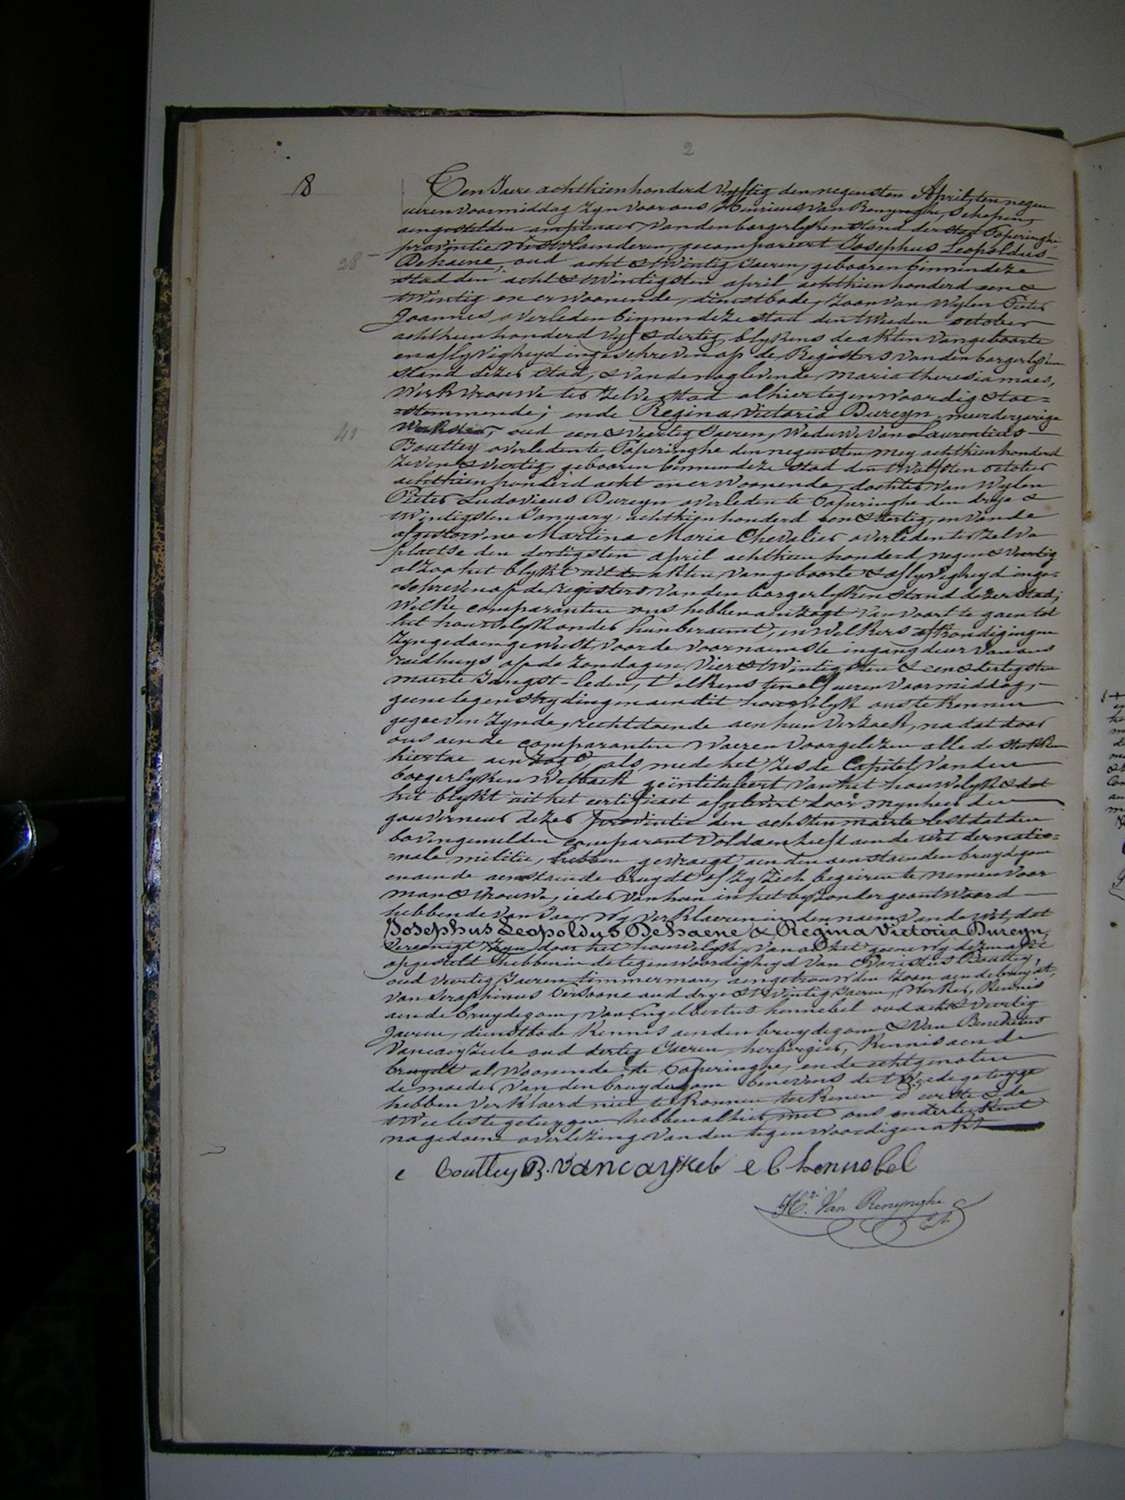 2
8
Ten Jaere achthien honderd vyftig den negensten April, ten negen
ueren voormiddag zyn voor ons Henricus Van Renynghe, Schepen,
aengestelden amptenaer van den borgerlyken stand der stad Poperinghe
provintie Westvlaenderen, gecompareert Josephus Leopoldus
28 Dehaene, oud acht & twintig Jaeren, geboren binnen deze
stad den acht & twintigsten april achthien honderd een &
twintig en er woonende, dienstbode, zoon van wylen Pieter
Joannes overleden binnen deze stad den tweeden october
achthien honderd vyf & dertig, blykens de akten van geboorte
en aflyvigheyd ingeschreven op de Registers van den borgerlyken
stand dezer stad, & van de naglevende Maria Theresia Maes,
werkvrouwe ter zelve stad alhier tegenwoordig & toe-
-stemmende; ende Regina Victoria Dureyn, meerderjarige
41 oud een & veertig Jaeren, Weduwe van Laurentius
Bouttey overleden te Poperinghe den negensten mey achthien honderd
zeven & veertig, geboren binnen deze stad den twalfsten october
achthien honderd acht en er woonende, dochter van wylen
Pieter Ludovicus Dureyn overleden te Poperinghe den drye &
twintigsten January achthien honderd een & dertig, en van de
afgestorvene Martina Maria Chevalier overleden ter zelve
plaetse den dertigsten april achthien honderd negen & veertig
alzoo het blykt uit de akten van geboorte & aflyvigheyd inge-
-schreven op de registers van den borgerlyken stand dezer stad;
Welke comparanten ons hebben aenzogt van voort te gaen tot
het houwelyk onder hun beraemt, en welkers afkondigingen
zyn gedaen geweest voor de voornaemste ingang deur van ons
raedhuys op de zondagen, vier & twintigsten & een & dertigsten
maerte Jongst-leden, t'elkens ten elf ueren voormiddag,
geene tegenstrydingen aen dit houwelyk ons te kennen
gegeven zynde, rechtdoende aen hun verzoek, na dat door
ons aen de comparanten waeren voorgelezen alle de stukken
hiertoe aenzogt, als mede het zesde Capitel van den
borgerlyken Wetboek geïntituleert van het houwelyk & dat
het blykt uit het certificaet afgelevert door mynheer den
gouverneur dezer provintie den achsten maerte lest dat den
bovengemelden comparant voldaen heeft aen de wet der natio-
-nale militie, hebben gevraegd aen den aenstaenden bruydegom
en aen de aenstaende bruydt of zy zich begeiren te nemen voor
man & vrouwe, ieder van hun in het byzonder geantwoord
hebbende van Jae, Wy verklaeren in den naem van de wet, dat
Josephus Leopoldus Dehaene & Regina Victoria Dureyn,
vereenigt zyn door het houwelyk. Van al het gene wy deze akte
opgestelt hebben in de tegenwoordigheyd van Bouttey,
oud veertig Jaeren timmerman, aengetrouwden zoon aen de bruydt,
van Seraphinus Persoone oud drye & twintig Jaeren, Werker, Kennis
aen de bruydegom, van Engelbertus Hennebel oud acht & veertig
Jaeren, dienstbode Kennis aen den bruydegom & van Benedictus
Vancayzeele oud dertig Jaeren, herbergier, Kennis aen de
bruydt al woonende te Poperinghe, en de echtgenoten
de moeder van den bruydegom benevens de tweede getuyge
hebben verklaerd niet te konnen teekenen d'eerste & de
twee leste getuygen hebben alhier met ons onderteekent
na gedaene overlezing van den tegenwoordigen akt
e Bouttey B. Vancayzeele e b hennebel
He. Van Renynghe